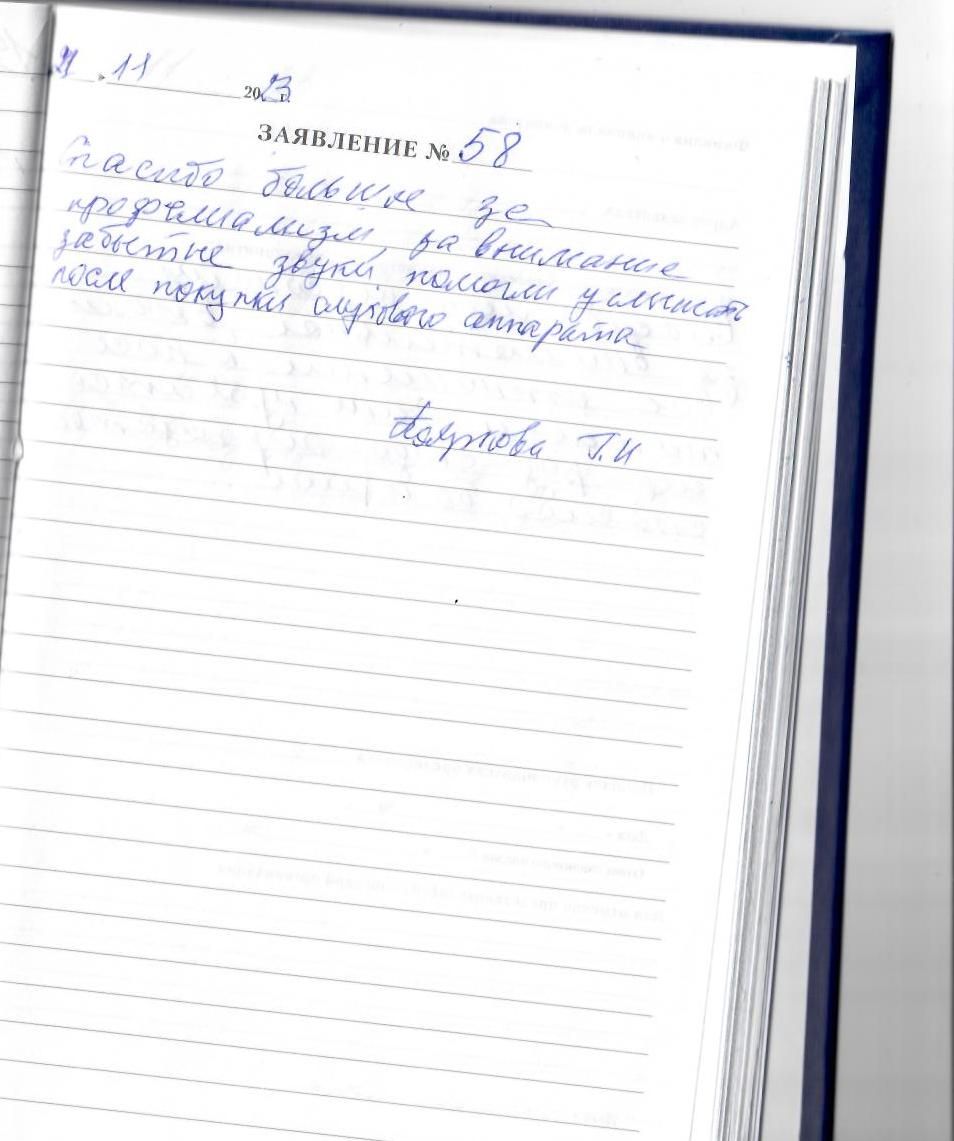 11 2023 г.
ЗАЯВЛЕНИЕ № 58
Спасибо большое за
профелиализм, за внимание
забытые звуки помогли услышать
после покупки слухового аппарата
Г.И